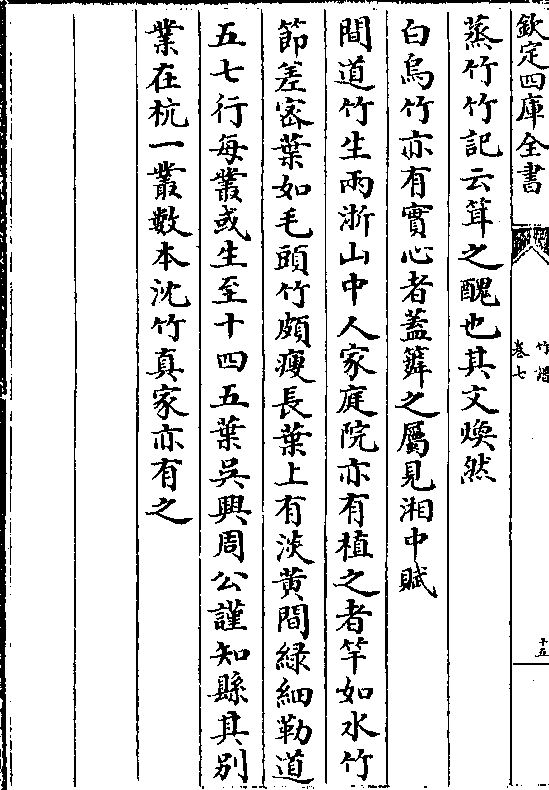 欽定四庫全書
竹譜
卷七
十五
蒸竹竹記云箕之醜也其文煥然
白烏竹亦有實心者蓋簳之屬見湘中賦
間道竹生兩浙山中人家庭院亦有植之者竿如水竹
節差宻葉如毛頭竹頗瘦長葉上有淡黄間緑細勒道
五七行每叢或生至十四五葉吳興周公謹知縣其别
業在杭一叢數本沈竹真家亦有之